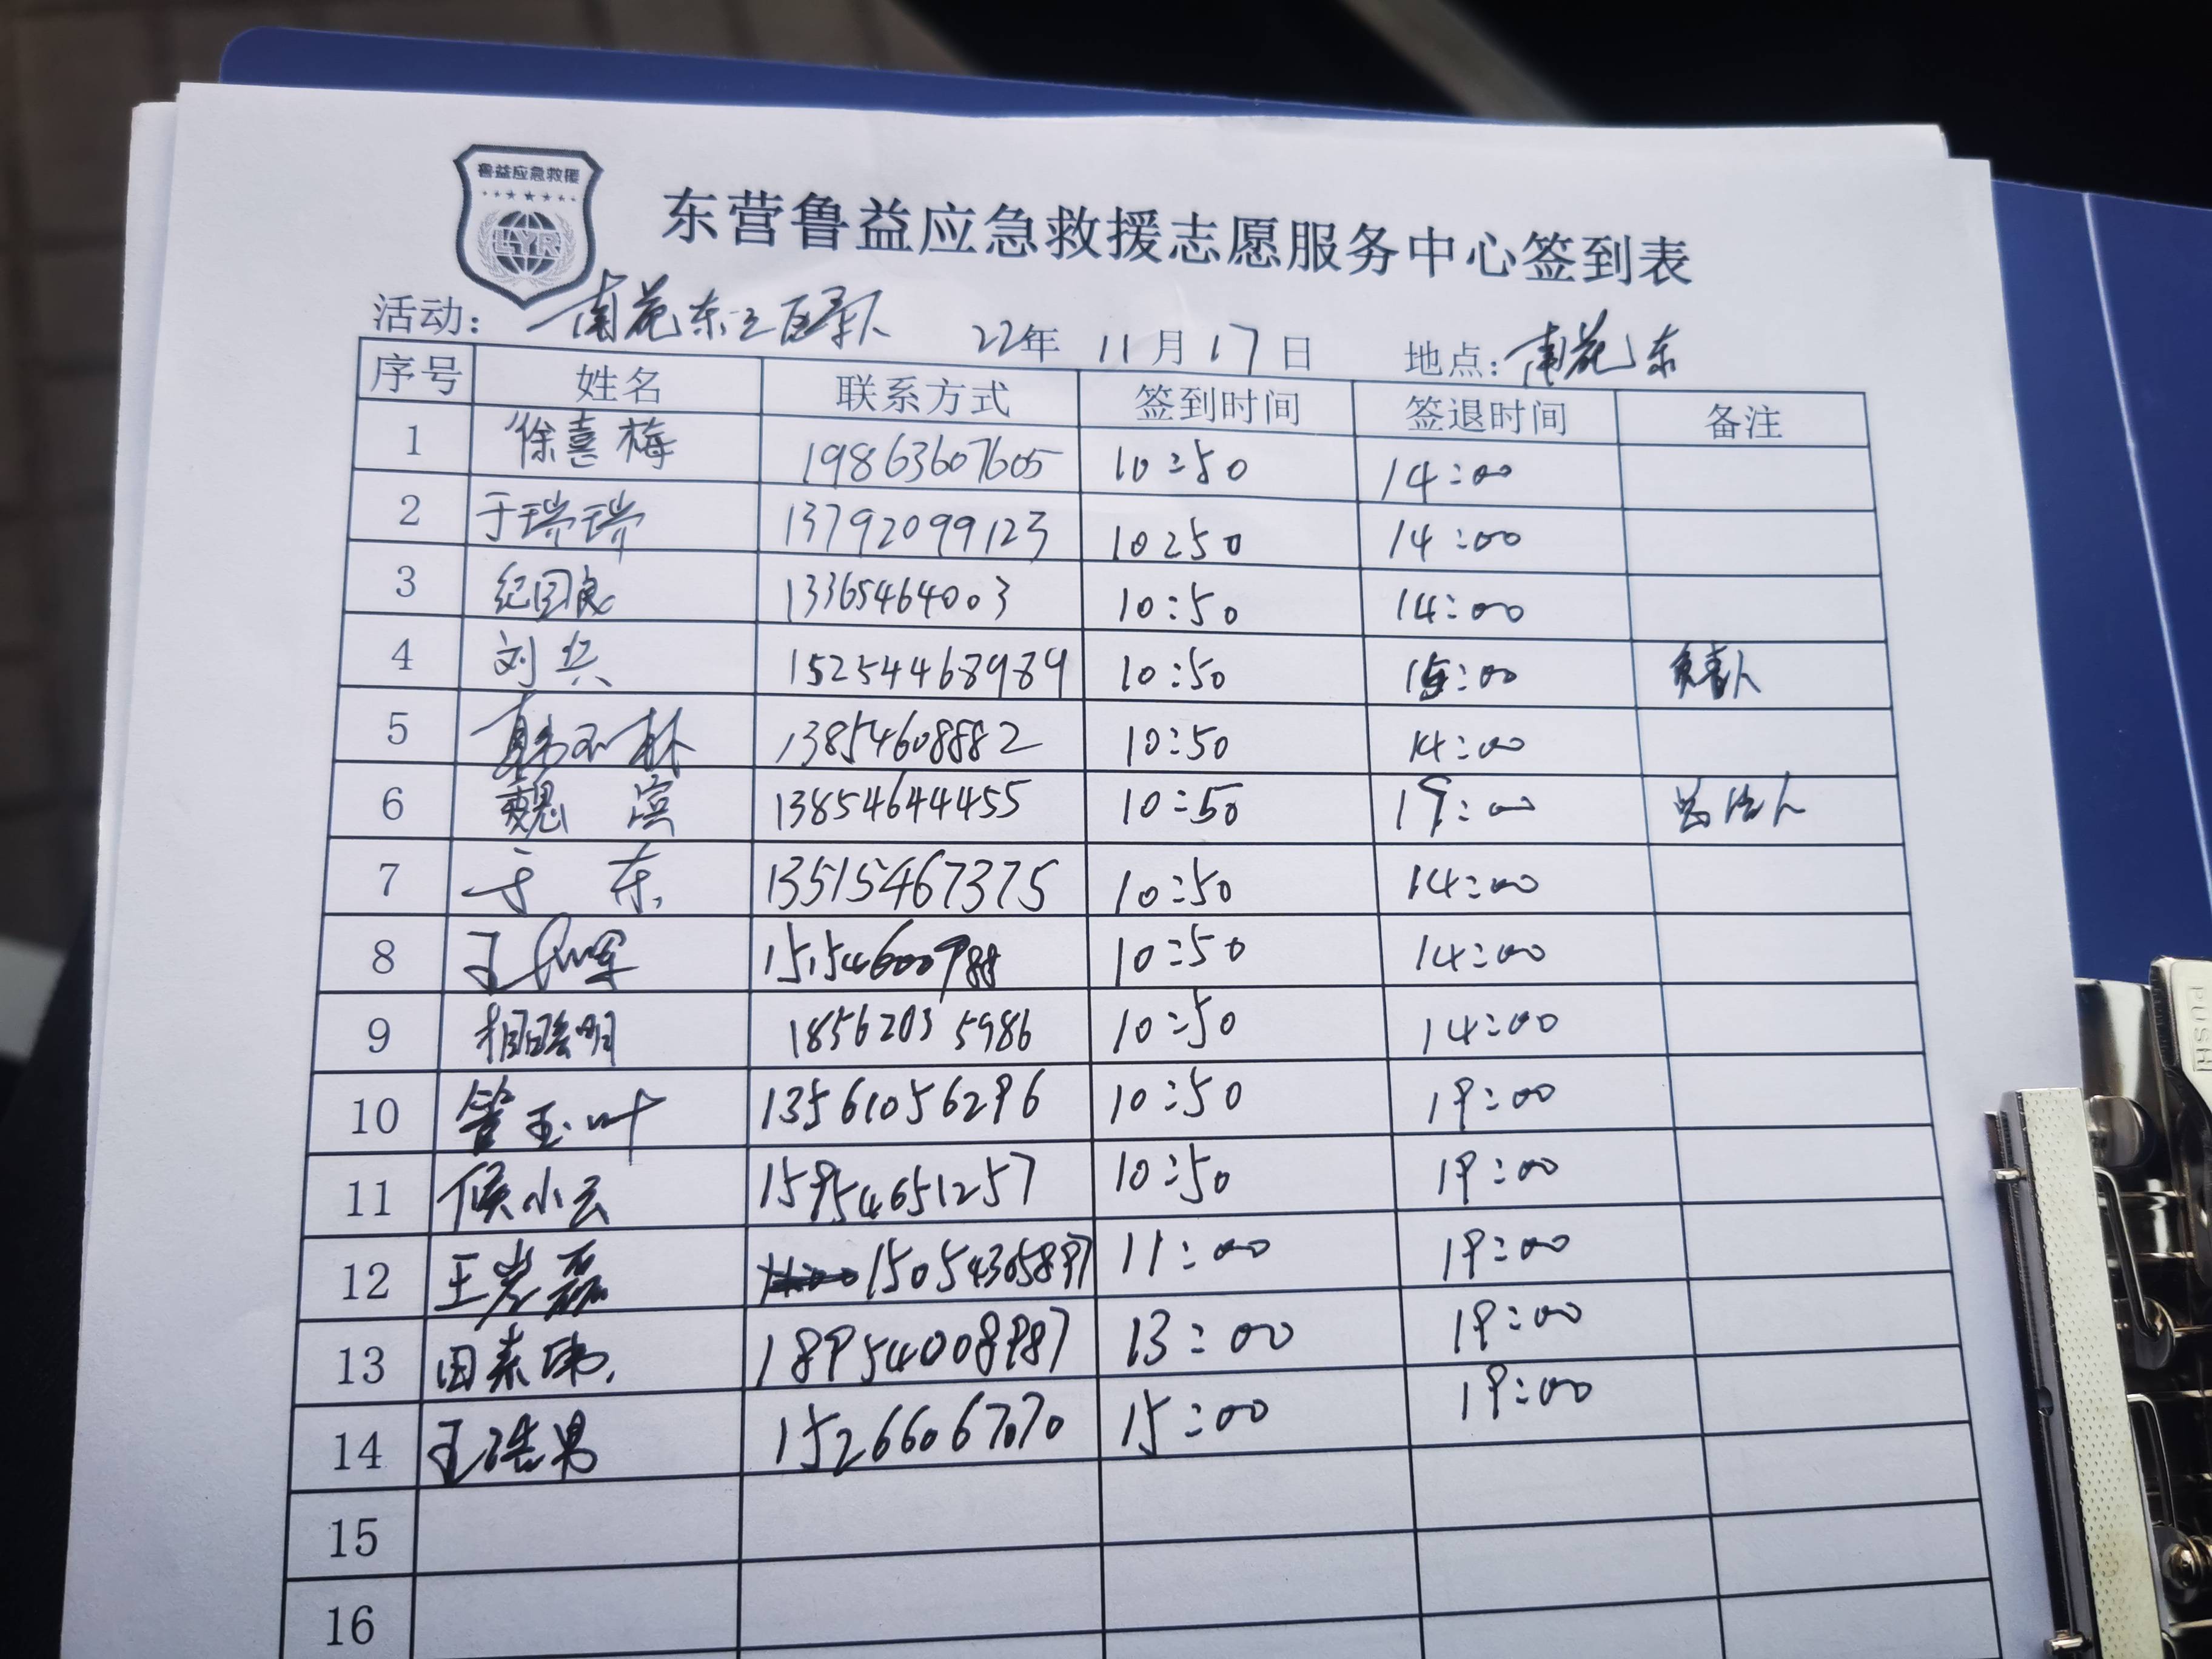 鲁益应急救援
LYR
东营鲁益应急救援志愿服务中心签到表
活动: 南苑东 22年 11月17日 地点: 南苑东
序号 姓名 联系方式 签到时间 签退时间 备注
1 徐喜梅 19863607605 10:50 14:00
2 于瑞瑞 13792099123 10:50 14:00
3 纪国良 13365464003 10:50 14:00
4 刘兵 15254468989 10:50 15:00 负责人
5 韩玉林 13854608882 10:50 14:00
6 魏滨 13854644455 10:50 19:00
7 于东 13515467375 10:50 14:00
8 王 15154600988 10:50 14:00
9 相聪明 18562035986 10:50 14:00
10 管玉叶 13561056296 10:50 19:00
11 侯小云 15954651257 10:50 19:00
12 王岩磊 15054305897 11:00 19:00
13 田素 18954008987 13:00 19:00
14 王浩男 15266067070 15:00 19:00
15
16
PUSH